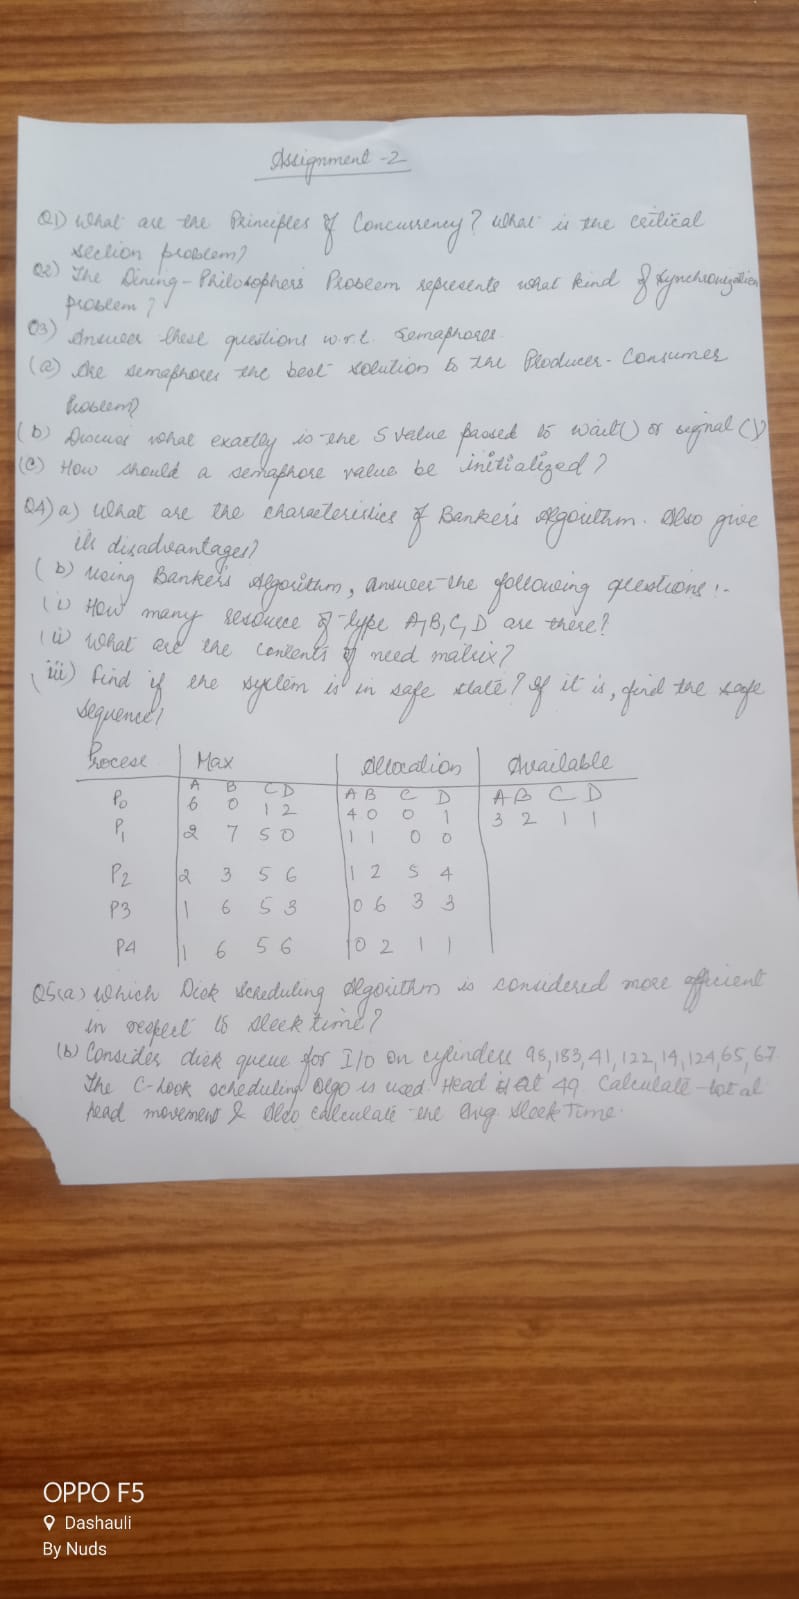 Assignment -2
Q1) What are the Principles of Concurrency? What is the critical
section problem?
Q2) The Dining-Philosophers Problem represents what kind of Synchronization
problem?
Q3) Answer these questions w.r.t. Semaphores.
(a) Are semaphores the best solution to the Producer-Consumer
Problem?
(b) Discuss what exactly is the S value passed to wait() or signal()?
(c) How should a semaphore value be initialized?
Q4) a) What are the characteristics of Banker's Algorithm. Also give
its disadvantages?
(b) Using Banker's Algorithm, answer the following questions:-
(i) How many resource of type A,B,C,D are there?
(ii) What are the contents of need matrix?
(iii) Find if the system is in safe state? If it is, find the safe
sequence?
Process Max Allocation Available
A B C D A B C D A B C D
P0 6 0 1 2 4 0 0 1 3 2 1 1
P1 2 7 5 0 1 1 0 0
P2 2 3 5 6 1 2 5 4
P3 1 6 5 3 0 6 3 3
P4 1 6 5 6 0 2 1 1
Q5(a) Which Disk Scheduling Algorithm is considered more efficient
in respect to sleek time?
(b) Consider disk queue for I/O on cylinders 98,183,41,122,14,124,65,67.
The C-Look scheduling algo is used. Head is at 49. Calculate total
head movement & Also calculate the Avg. Sleek Time.
OPPO F5
Dashauli
By Nuds